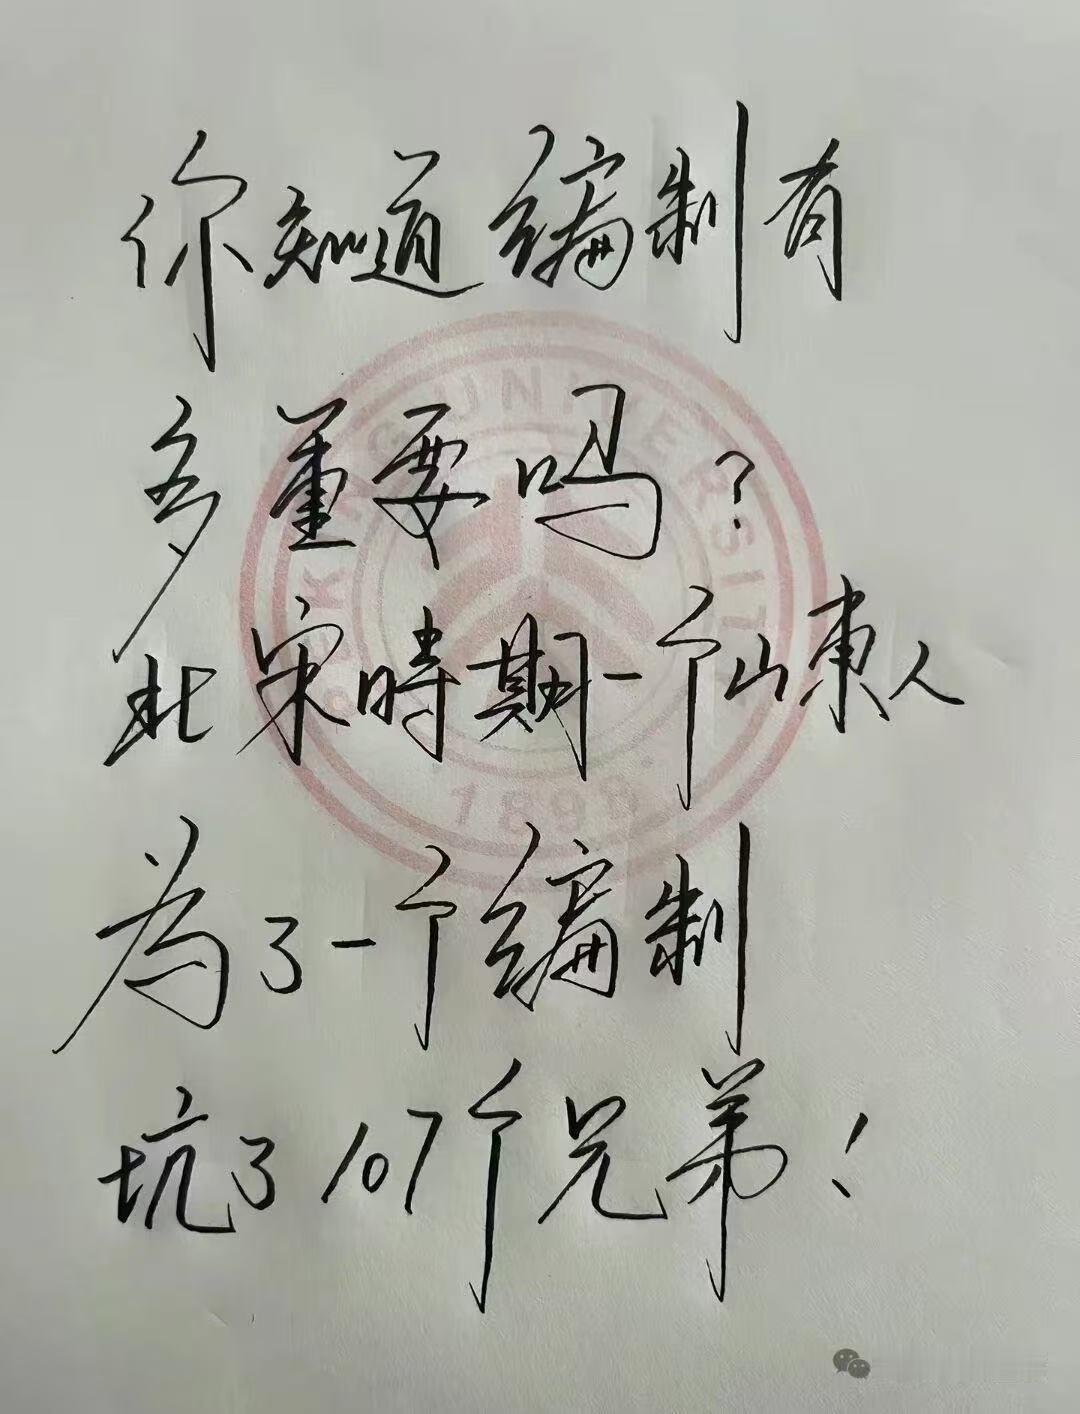 你知道编制有
多重要吗?
北宋時期一个山東人
為了一个编制
坑了107个兄弟!
PEKING UNIVERSITY
1898